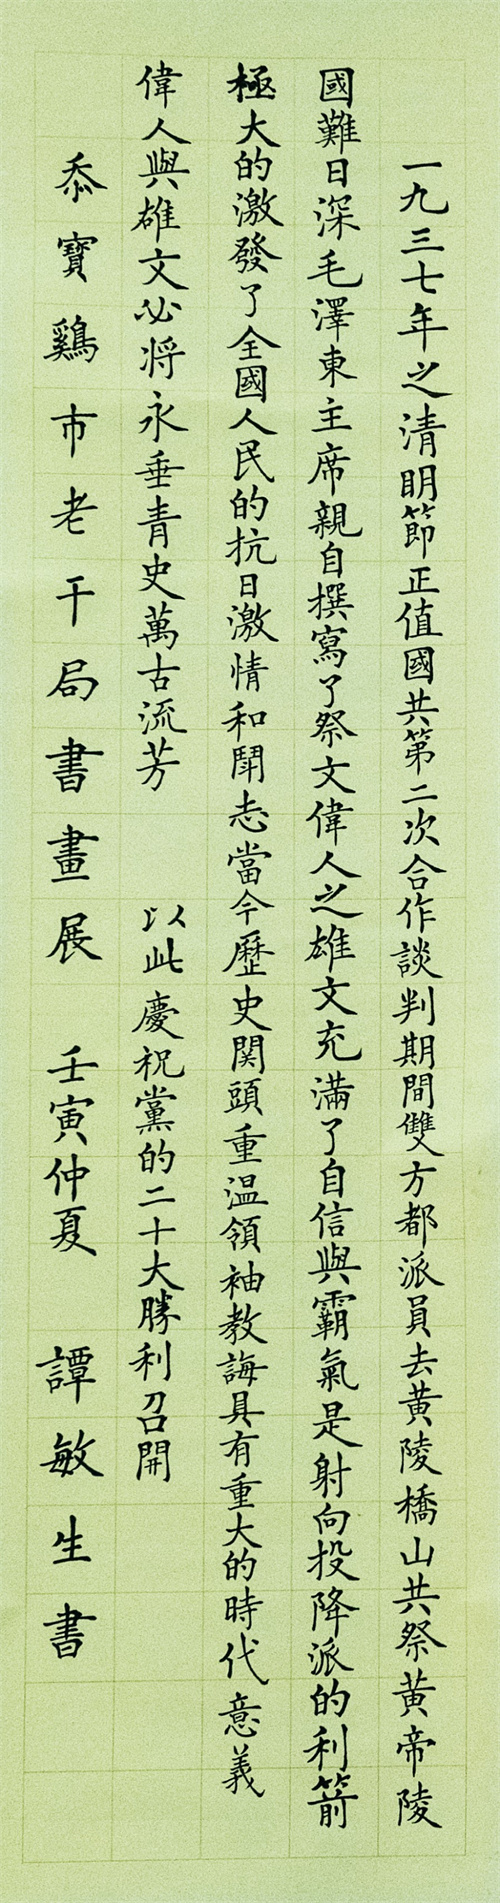 一九三七年之清明節正值國共第二次合作談判期間雙方都派員去黃陵橋山共祭黃帝陵
國難日深毛澤東主席親自撰寫了祭文偉人之雄文充滿了自信與霸氣是射向投降派的利箭
極大的激發了全國人民的抗日激情和鬥志當今歷史関頭重温領袖教誨具有重大的時代意義
偉人與雄文必将永垂青史萬古流芳 以此慶祝黨的二十大勝利召開
忝寶鷄市老干局書畫展 壬寅仲夏 譚敏生書